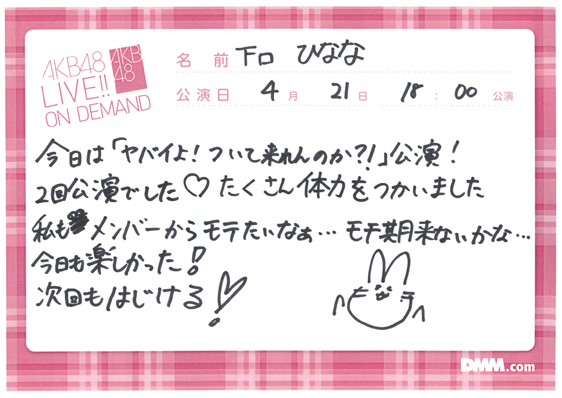 AKB48
LIVE!!
ON DEMAND
AKB
48
名 前 下口 ひなな
公演日 4月 21日 18:00 公演
今日は「ヤバイよ!ついて来れんのか?!」公演!
2回公演でした♡たくさん体力をつかいました
私もメンバーからモテたいなぁ…モテ期来ないかな…
今日も楽しかった!
次回もはじける!
DMM.com